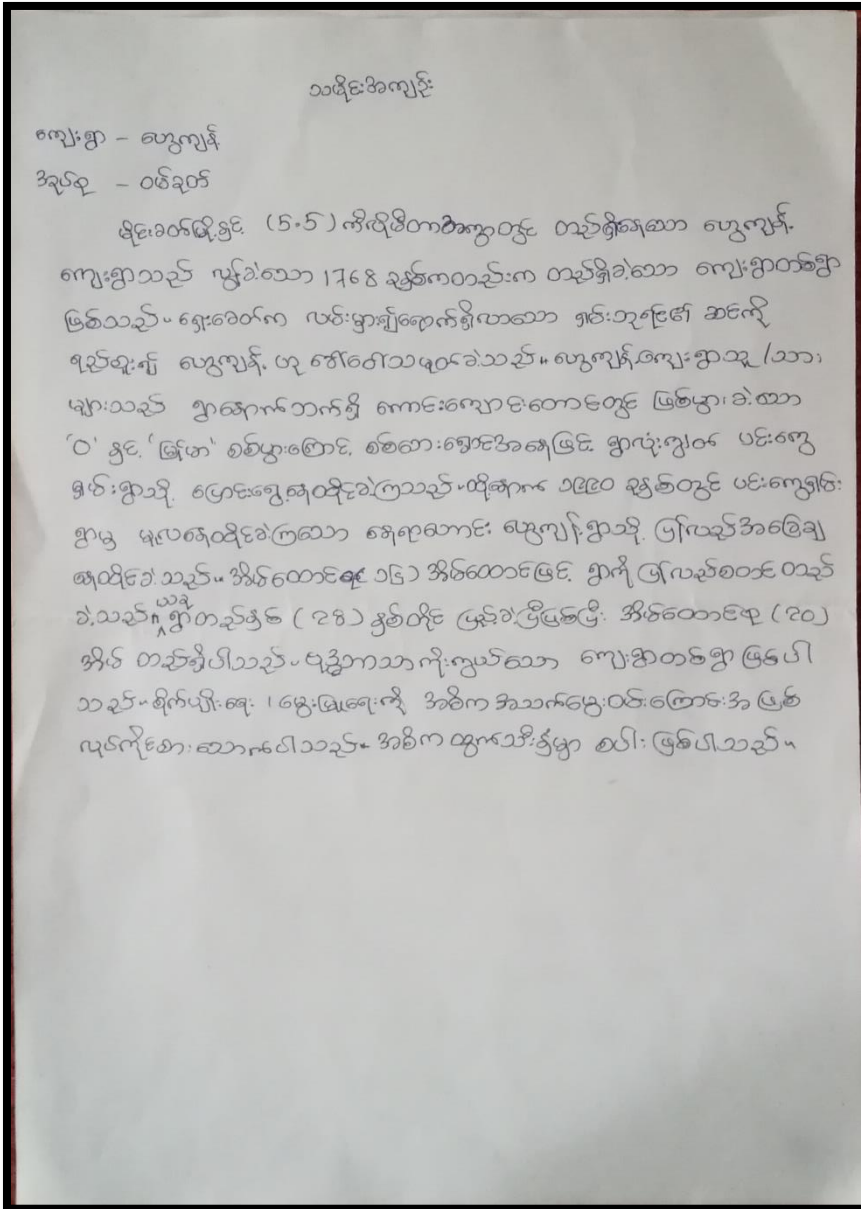 သမိုင်းအကျဉ်း
ကျေးရွာ - ဟွေကျန့်
အုပ်စု - ဝမ်ခုတ်
မိုင်းခတ်မြို့နှင့် (5.5) ကီလိုမီတာအကွာတွင် တည်ရှိနေသော ဟွေကျန့်
ကျေးရွာသည် လွန်ခဲ့သော 1768 ခုနှစ်ကတည်းက တည်ရှိခဲ့သော ကျေးရွာတစ်ရွာ
ဖြစ်သည်။ ရှေးခေတ်က လမ်းမှား၍ရောက်ရှိလာသော ရှမ်းဘုရင်၏ ဆင်ကို
ရည်စူး၍ ဟွေကျန့် ဟု ခေါ်ဝေါ်သမုတ်ခဲ့သည်။ ဟွေကျန့်ကျေးရွာသူ/သား
များသည် ရွာနောက်ဘက်ရှိ ကောင်းကျောင်းတောင်တွင် ဖြစ်ပွားခဲ့သော
'ဝ' နှင့် 'မြန်မာ' စစ်ပွဲကြောင့် စစ်ဘေးရှောင်အနေဖြင့် ရွာလုံးကျွတ် ပင်းကွေ့
ရှမ်းရွာသို့ ပြောင်းရွှေ့နေထိုင်ခဲ့ကြသည်။ ထို့နောက် ၁၉၉၀ ခုနှစ်တွင် ပင်းကွေ့ရှမ်း
ရွာမှ မူလနေထိုင်ခဲ့ကြသော နေရာဟောင်း ဟွေကျန့်ရွာသို့ ပြန်လည်အခြေချ
နေထိုင်ခဲ့သည်။ အိမ်ထောင်စု ၁၆) အိမ်ထောင်ဖြင့် ရွာကို ပြန်လည်စတင် တည်
ခဲ့သည်။ ယခု ရွာတည်နှစ် (၃၁) နှစ်တိုင် ပြည့်ခဲ့ပြီဖြစ်ပြီး အိမ်ထောင်စု (၃၀)
အိမ် တည်ရှိပါသည်။ ဗုဒ္ဓဘာသာကိုးကွယ်သော ကျေးရွာတစ်ရွာ ဖြစ်ပါ
သည်။ စိုက်ပျိုးရေး ၊ မွေးမြူရေးကို အဓိက အသက်မွေးဝမ်းကြောင်းအဖြစ်
လုပ်ကိုင်စားသောက်ပါသည်။ အဓိက ထွက်သီးနှံမှာ စပါး ဖြစ်ပါသည်။